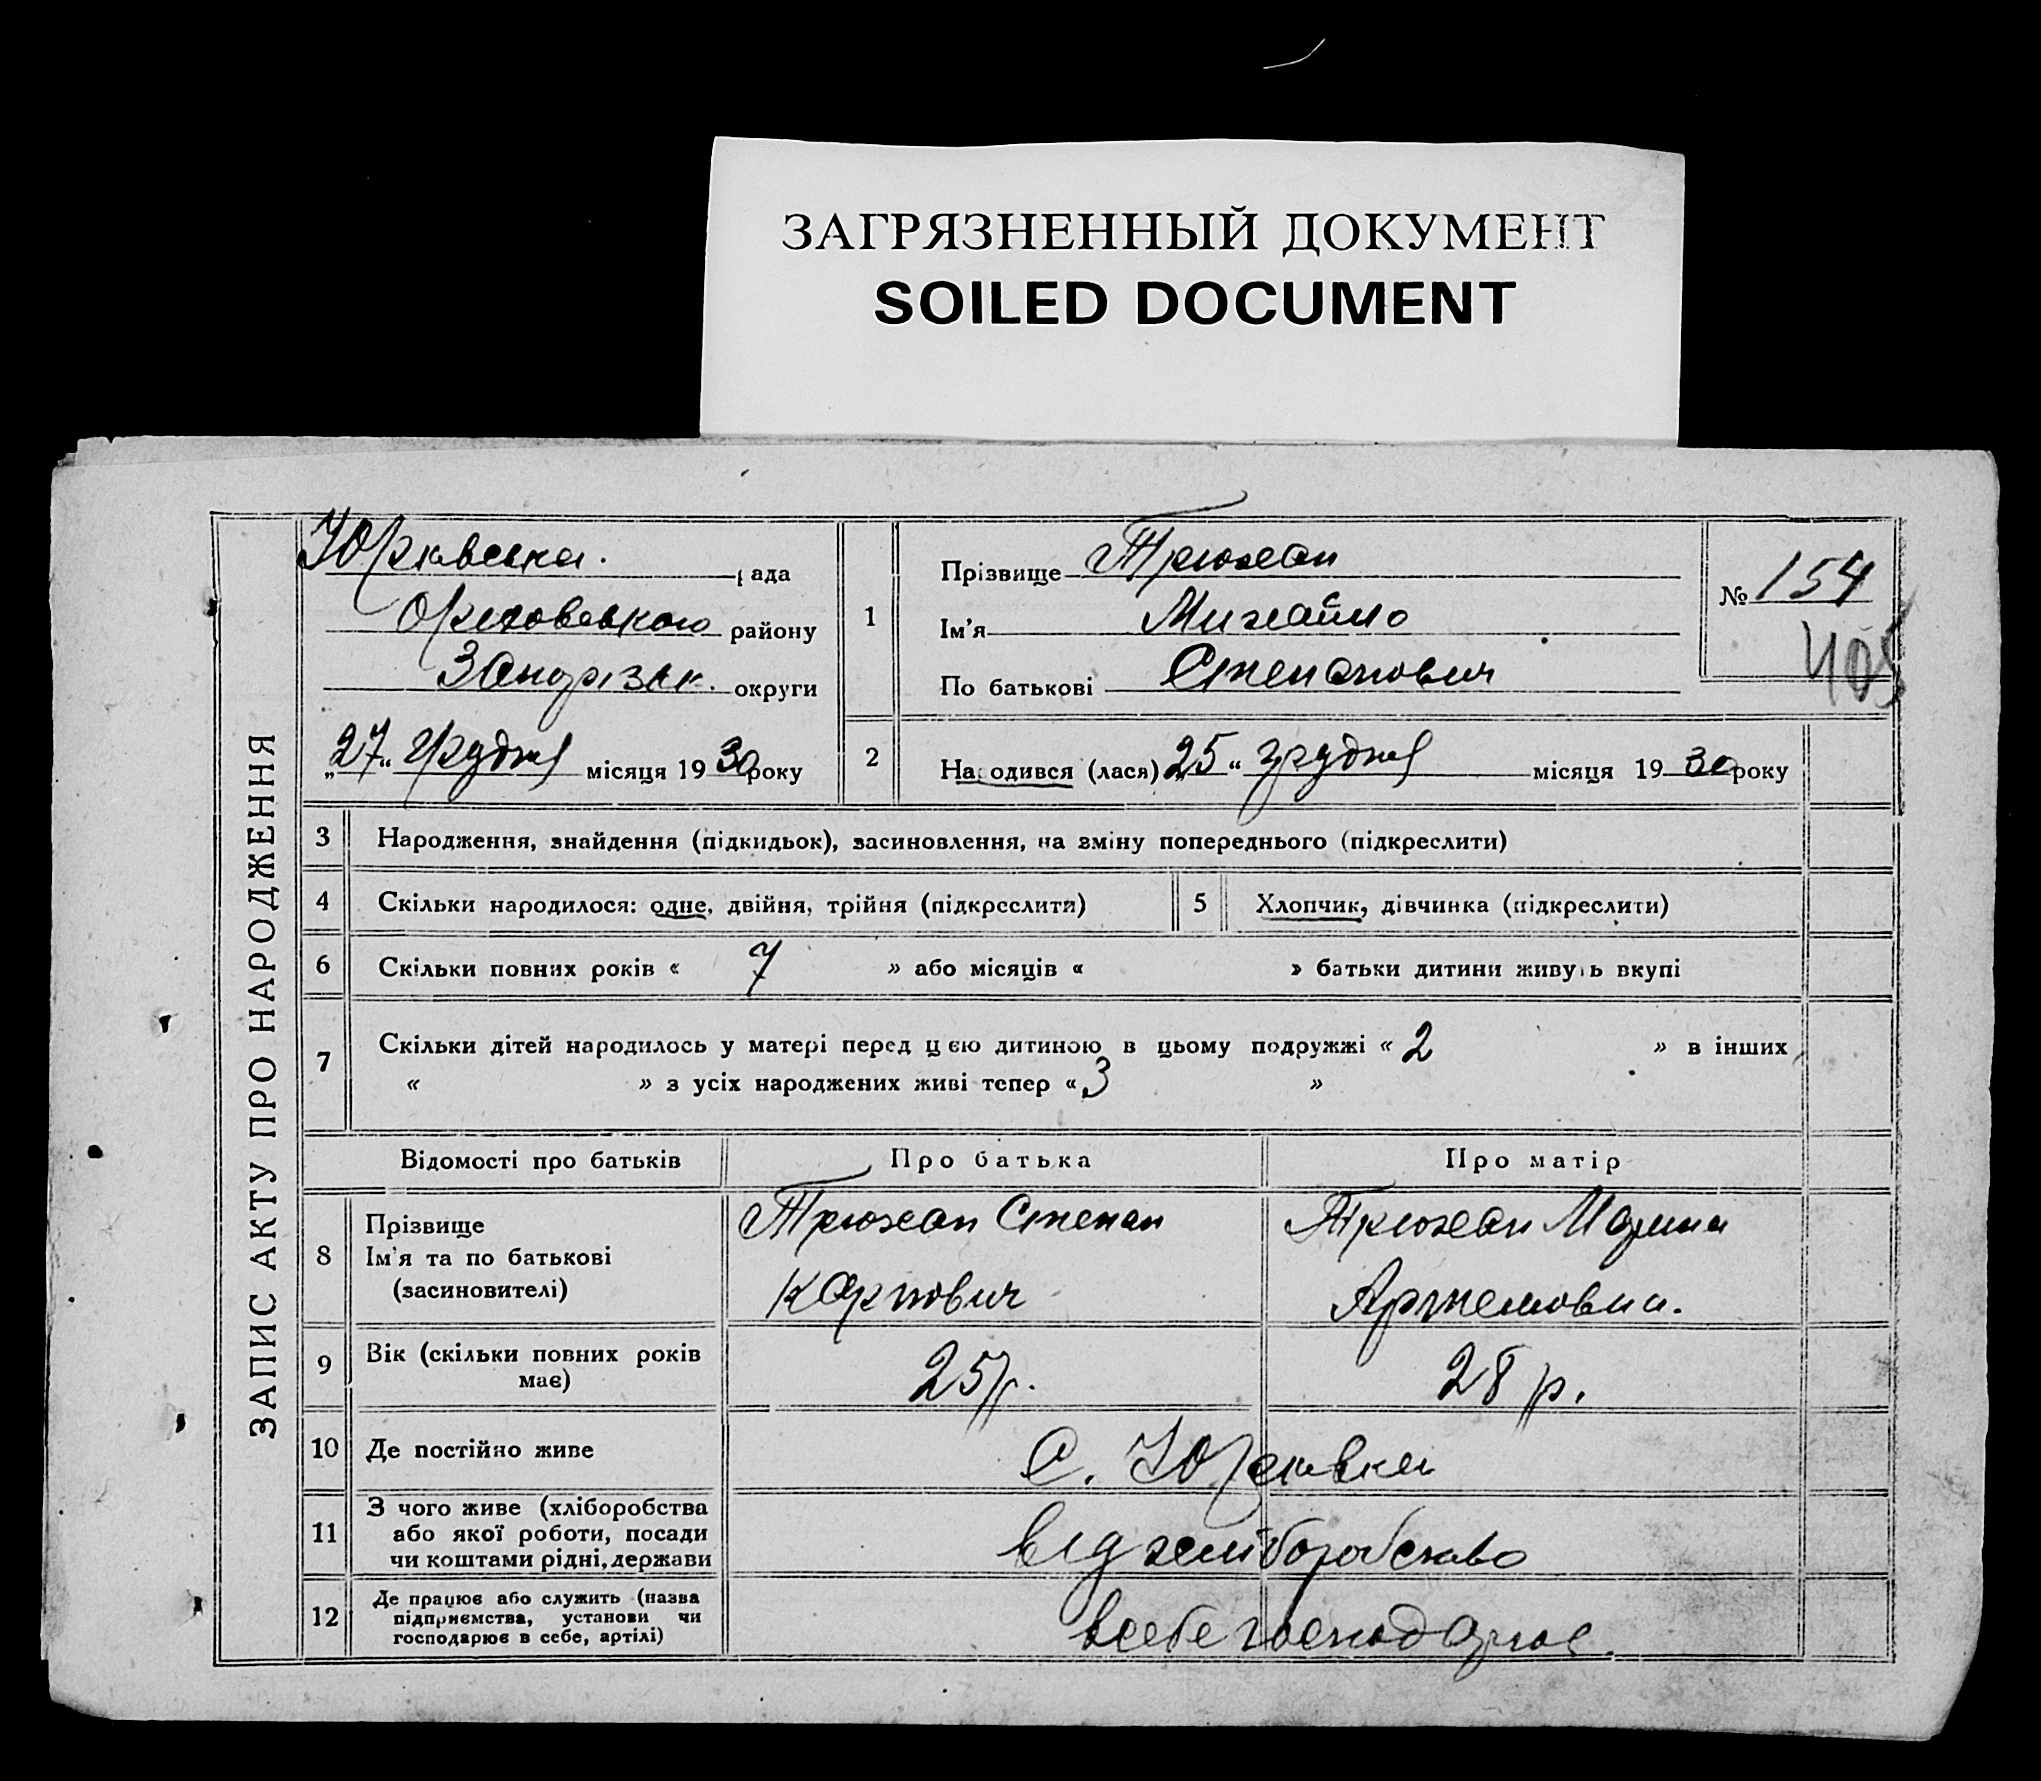 ЗАГРЯЗНЕННЫЙ ДОКУМЕНТ
SOILED DOCUMENT
ЗАПИС АКТУ ПРО НАРОДЖЕННЯ
Юрківська. рада
Оріховського району
Запорізьк. округи
„27“ грудня місяця 1930 року
1
Прізвище Трюхан
Ім’я Михайло
По батькові Степанович
№ 154
405
2
Народився (лася) „25“ грудня місяця 1930 року
3 Народження, знайдення (підкидьок), засиновлення, на зміну попереднього (підкреслити)
4 Скільки народилося: одне, двійня, трійня (підкреслити)
5 Хлопчик, дівчинка (підкреслити)
6 Скільки повних років « 7 » або місяців « » батьки дитини живуть вкупі
7 Скільки дітей народилось у матері перед цією дитиною в цьому подружжі « 2 » в інших
« » з усіх народжених живі тепер « 3 »
Відомості про батьків Про батька Про матір
8 Прізвище
Ім’я та по батькові
(засиновителі)
Трюхан Степан
Карпович
Трюхан Марина
Артемовна.
9 Вік (скільки повних років
має)
25 р. 28 р.
10 Де постійно живе с. Юрківка
11 З чого живе (хліборобства
або якої роботи, посади
чи коштами рідні, держави
від хліборобство
12 Де працює або служить (назва
підприємства, установи чи
господарює в себе, артілі)
в себе господарює.